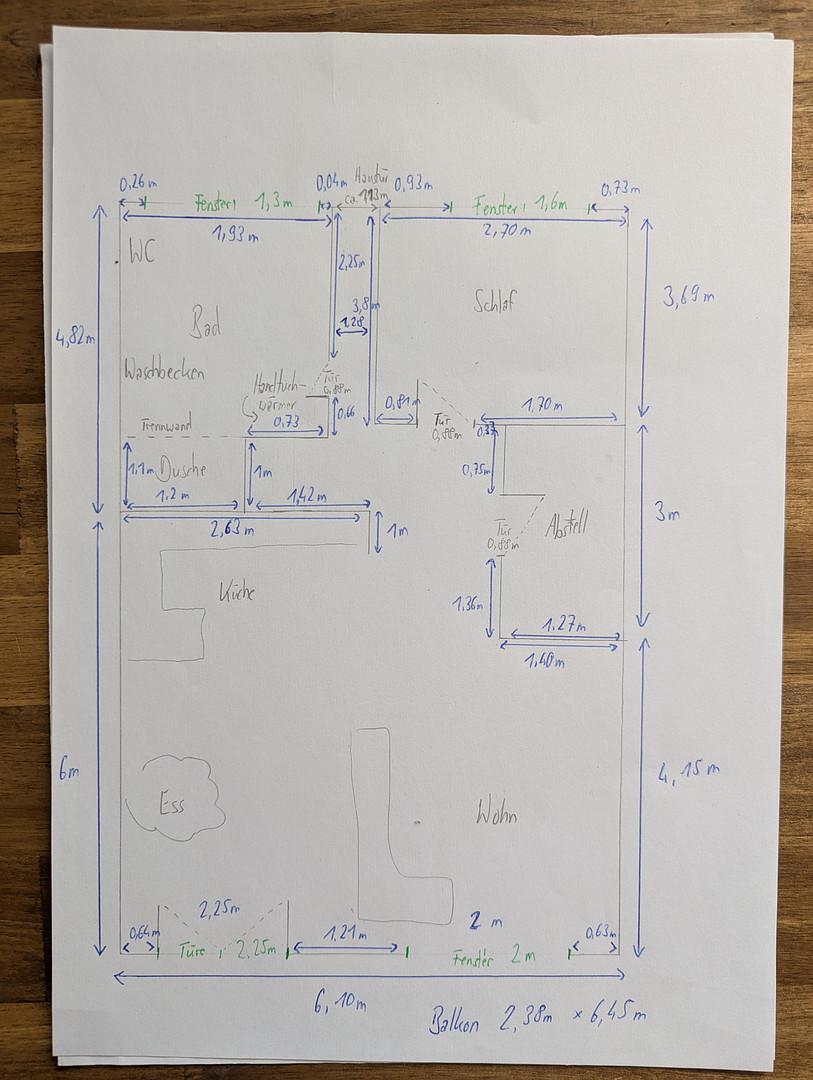 0,26m
Fenster 1,3m
0,04m
Haustür
ca. 113m
0,93m
Fenster 1,6m
0,73m
1,93m
2,70m
WC
2,25m
Schlaf
3,69m
3,8m
Bad
1,28
4,82m
Waschbecken
Handtuch-
wärmer
Tür
0,88m
0,73
0,66
0,81m
Tür
0,88m
1,70m
0,37
Trennwand
1,1m
Dusche
1m
0,75m
1,2m
1,42m
2,63m
1m
3m
Tür
0,88m
Abstell
Küche
1,36m
1.27m
1,40m
6m
4,15m
Ess
Wohn
2,25m
2 m
0,64m
Türe 2,25m
1,21m
Fenster 2m
0,63m
6,10m
Balkon 2,38m × 6,45m